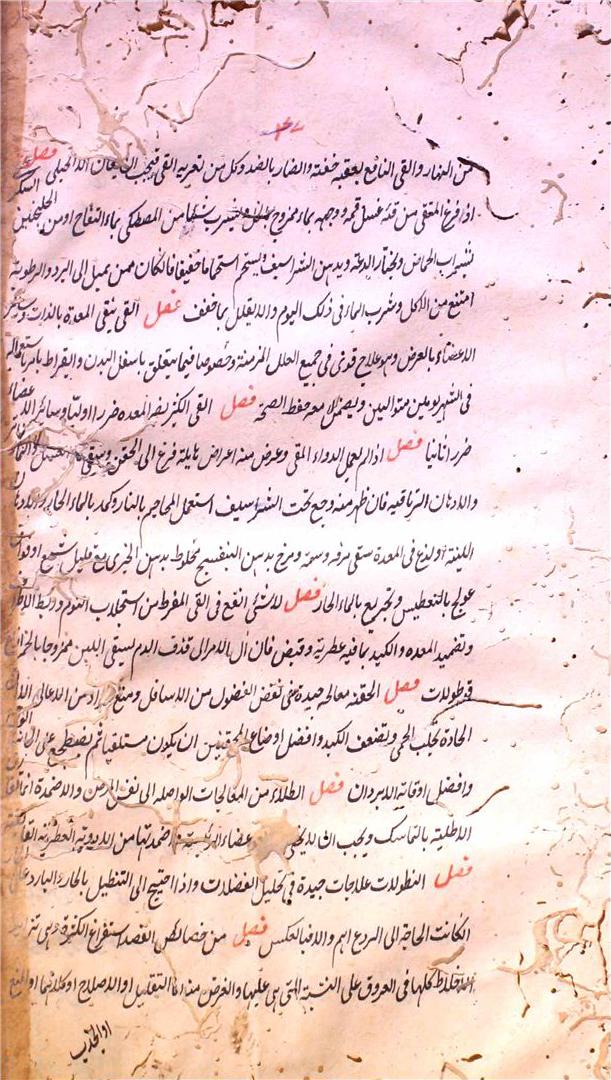 من النهار والقى النافع يعقبه خفة والضار بالضد وكل من تعريه القى فيجب فصل
اذا فرغ المتقى من قذفه غسل فمه ووجهه بماء ممزوج بخل وليشرب شيئا من المصطكى بماء التفاح او من الجلنجبين
بشراب الحماض ويختار الدعة ويدهن الشراسيف ويستحم استحماما خفيفا فان كان ممن يميل الى البرد والرطوبة
امتنع من الاكل وشرب الماء فى ذلك اليوم والا يقلل بما خفف فصل القى ينقى المعدة بالذات وسائر
الاعضاء بالعرض وهو علاج قوى فى جميع العلل المزمنة وخصوصا فيما يتعلق باسفل البدن والبقراط يامر باستعماله
فى الشهر يومين متواليين ويضمن معه حفظ الصحة فصل القى الكثير يضر المعدة ضررا اوليا وسائر الاعضاء
ضررا ثانيا فصل اذا لم يعمل الدواء المقى وعرض منه اعراض هايلة فزع الى الحقن وسقى العسل والماء
والادهان الترياقية فان ظهر منه وجع تحت الشراسيف استعمل المحاجم بالنار وكمد بالماء الحار والادهان
اللينة او لذع فى المعدة سقى مرقة دسمة ومرخ بدهن البنفسج مخلوط بدهن الخيرى مع قليل شمع او فواق
عولج بالتعطيس وتجريع بالماء الحار فصل لا شئ انفع فى القى المفرط من استجلاب النوم وربط الاطراف
وتضميد المعدة والكبد بما فيه عطرية وقبض فان آل الامر الى قذف الدم يسقى اللبن ممزوجا بالخمر اربع
قوطولات فصل الحقنة معالجة جيدة فى نفض الفضول من الاسافل ومنع من الاعالى
الحادة تجلب الحمى وتضعف الكبد وافضل اوضاع المحتقنين ان يكون مستلقيا ثم يضطجع على
وافضل اوقاته الابردان فصل الطلاء من المعالجات الواصلة الى نفس المرض والاضمدة
الاطلية بالتماسك ويجب ان لا يخلى اعضاء الرئيسة اضمدتها من الادوية العطرية
فصل النطولات علاجات جيدة فى تحليل الفضلات واذا احتيج الى التنطيل بالحار والبارد
ان كانت الحاجة الى الردع اهم والا فبالعكس فصل من خصائص الفصد استفراغ الكثرة وهى تزايد
الاخلاط كلها فى العروق على النسبة التى هى عليها والغرض منه اما التقليل او الاصلاح او كلاهما او المنع
او الجذب